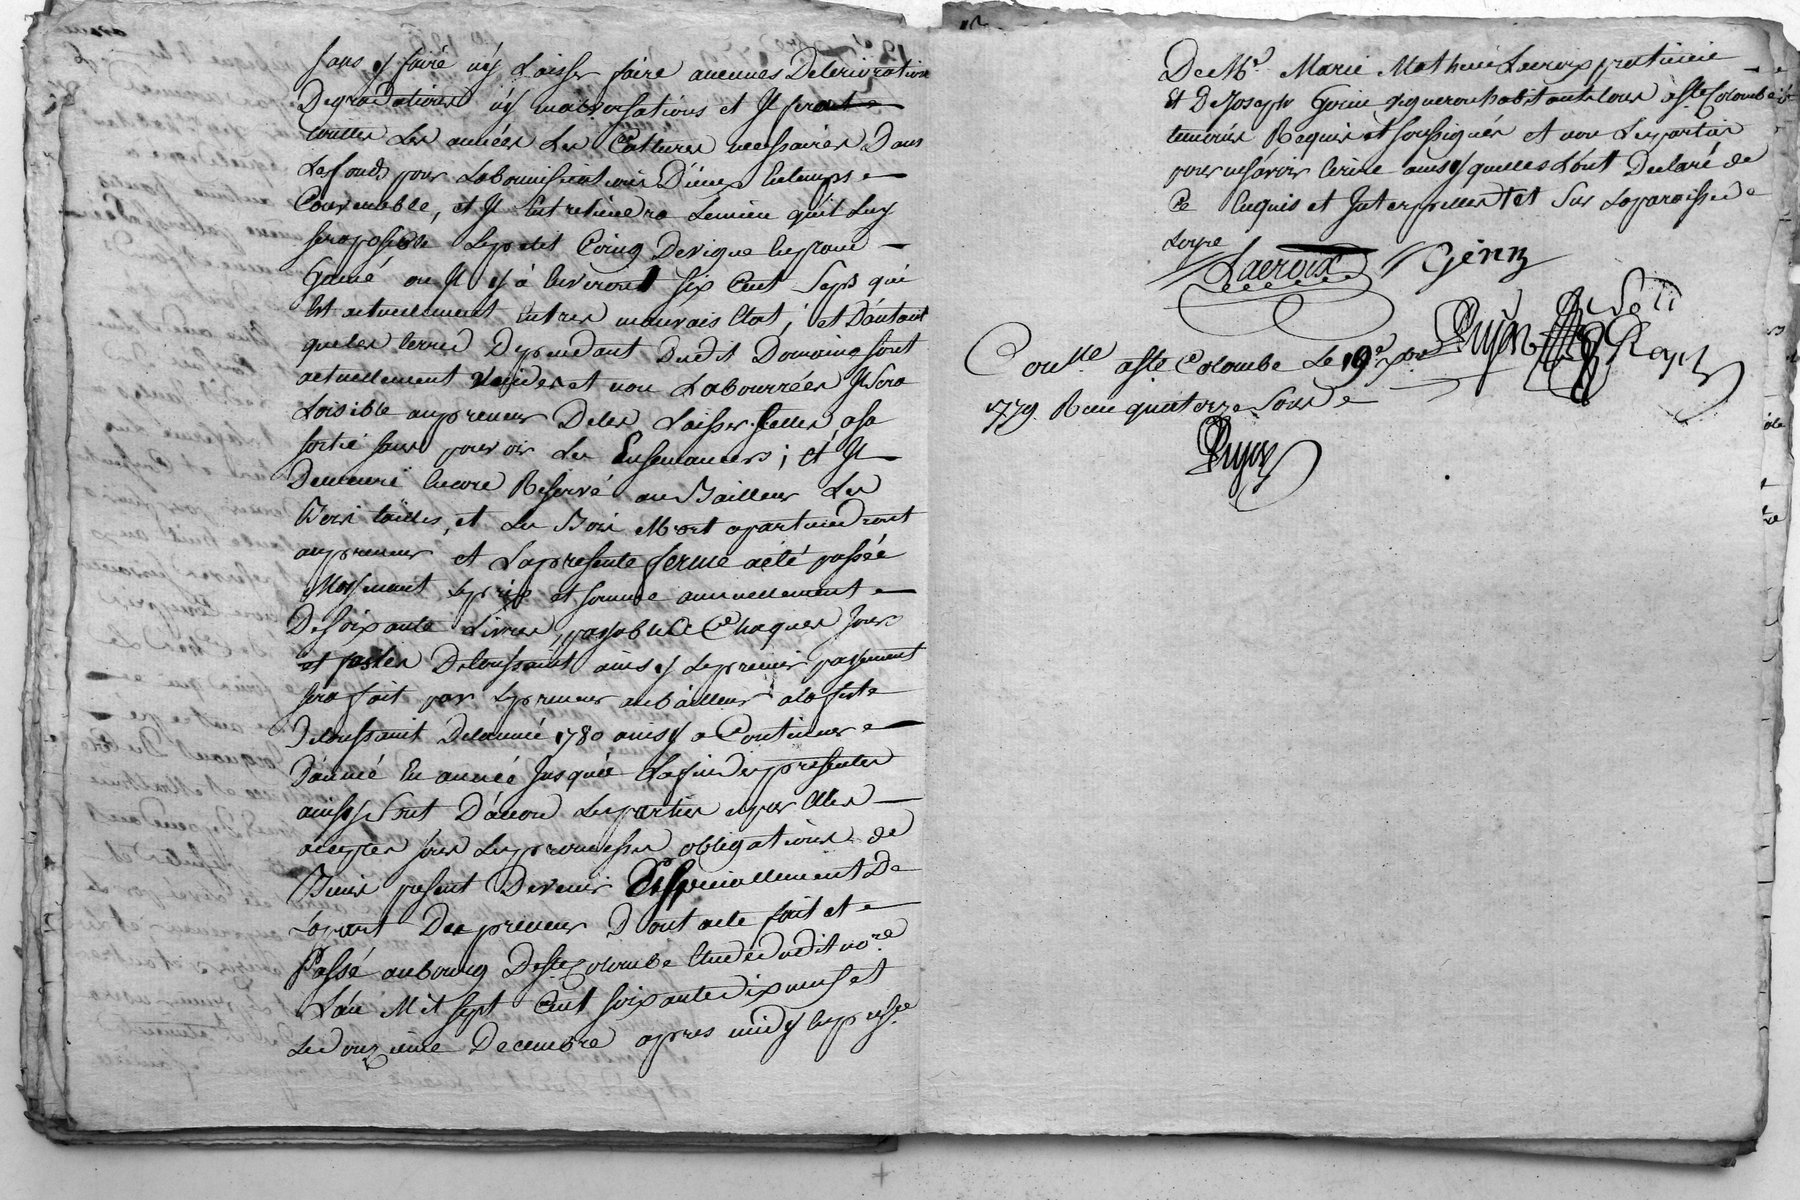 sans y faire n'y Laisser faire aucunes Deteriorations
Degradations n'y malversations et Il fera
toutes Les années Les Cultures necessaires Dans
Les fonds pour Labonnification D'iceux En temps
Convenable, et Il Entretiendra Lemieu qu'il Luy
sera possible Le petit Coing De vigne
ou Il y à Environ six Cent Seps qui
Est actuellement En tres mauvais Etat; et D'autant
que les terres Dependant Dudit Domaine sont
actuellement vuides et non Labourrées Il sera
Loisible au preneur De les Laisser telles, asa
sortie sans pouvoir Les Ensemancers; et Il
Demeure Encore Reservé au Bailleur Les
Bois taillis, et Les Bois Mort apartiendront
au preneur et La presente ferme aété passée
Moyenant Le prix et somme annuellement
De soixante Livres, payable a Chaques Jour
et festes De toussaint ainsy Le premier payement
sera fait par Le preneur au bailleur ala feste
De toussaint De L'année 1780 ainsy a Continuer
D'année En année Jusqu'à La fin Des presentes
ainsy Sont D'acord Les parties et par Elles
aceptés sous Les promesses obligations de
Biens present Devenir et specialement De
La part Des preneur Dont acte fait et
Passé au bourg De Ste Colombe Etude dudit nore.
L'an Mil sept Cent soixante dix neuf et
Le Douzieme Decembre apres midy En presce.
De Mr. Marie Mathieu Lacroix praticien
Et De Joseph Genin vigneron habitants tous a Ste Colombe
temoins Requis et soussignés et non Les parties
pour ne savoir Ecrire ainsy qu'elles L'ont Declaré de
Ce Enquis et Interpellées et Sur La paroisse de
Loyre
Lacroix Genin
Pujon
Coulle. a Ste Colombe Le 19e. xbre
1779. Recu quatorze Sous
Pujon